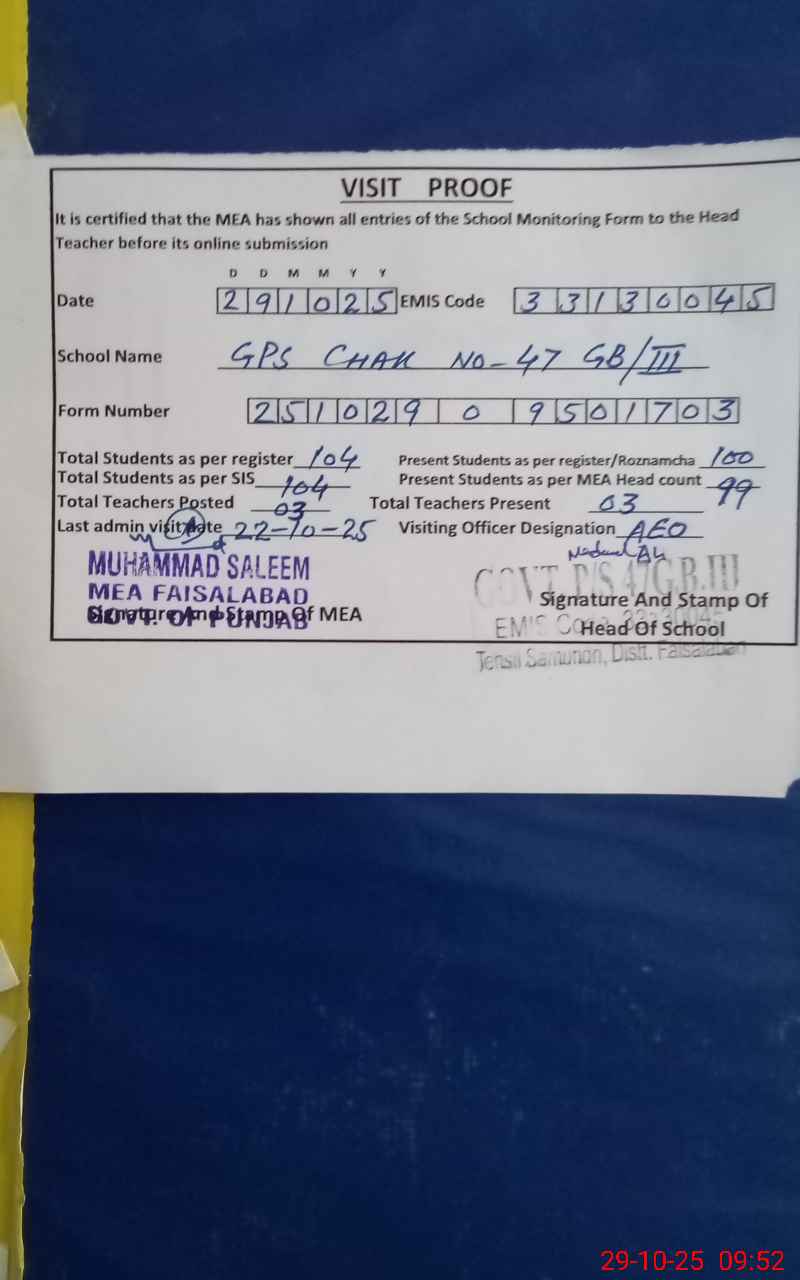 VISIT PROOF
It is certified that the MEA has shown all entries of the School Monitoring Form to the Head
Teacher before its online submission
D D M M Y Y
Date 291025 EMIS Code 33130045
School Name GPS CHAK NO-47 GB/III
Form Number 251029 0 9501703
Total Students as per register 104 Present Students as per register/Roznamcha 100
Total Students as per SIS 104 Present Students as per MEA Head count 99
Total Teachers Posted 03 Total Teachers Present 03
Last admin visit date 22-10-25 Visiting Officer Designation AEO
MUHAMMAD SALEEM
MEA FAISALABAD
GOVT. OF PUNJAB
Signature And Stamp Of MEA
GOVT P/S 47G.B.III
Signature And Stamp Of
EMIS Code
Head Of School
Distt. Faisalabad
29-10-25 09:52